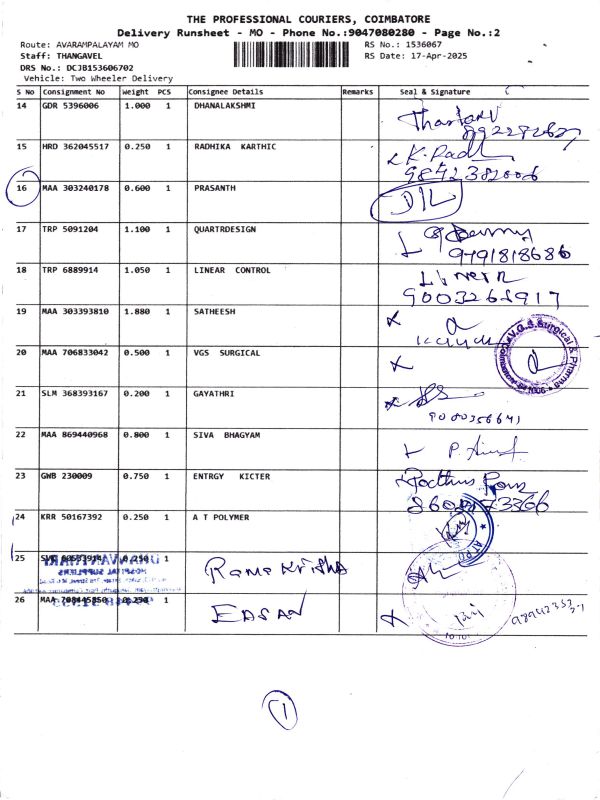 THE PROFESSIONAL COURIERS, COIMBATORE
Delivery Runsheet - MO - Phone No.:9047080280 - Page No.:2
Route: AVARAMPALAYAM MO RS No.: 1536067
Staff: THANGAVEL RS Date: 17-Apr-2025
DRS No.: DCJB153606702
Vehicle: Two Wheeler Delivery
S No Consignment No Weight PCS Consignee Details Remarks Seal & Signature
14 GDR 5396006 1.000 1 DHANALAKSHMI
15 HRD 362045517 0.250 1 RADHIKA KARTHIC
9842382006
16 MAA 303240178 0.600 1 PRASANTH
17 TRP 5091204 1.100 1 QUARTRDESIGN
9791818686
18 TRP 6889914 1.050 1 LINEAR CONTROL
9003268917
19 MAA 303393810 1.880 1 SATHEESH
V.G.S. Surgical & Pharma
20 MAA 706833042 0.500 1 VGS SURGICAL
21 SLM 368393167 0.200 1 GAYATHRI
9000356641
22 MAA 869440968 0.800 1 SIVA BHAGYAM
23 GWB 230009 0.750 1 ENTRGY KICTER
24 KRR 50167392 0.250 1 A T POLYMER
25 0.250 1 Rama Krisha
26 MAA 708445850 0.250 1 EASAN
1